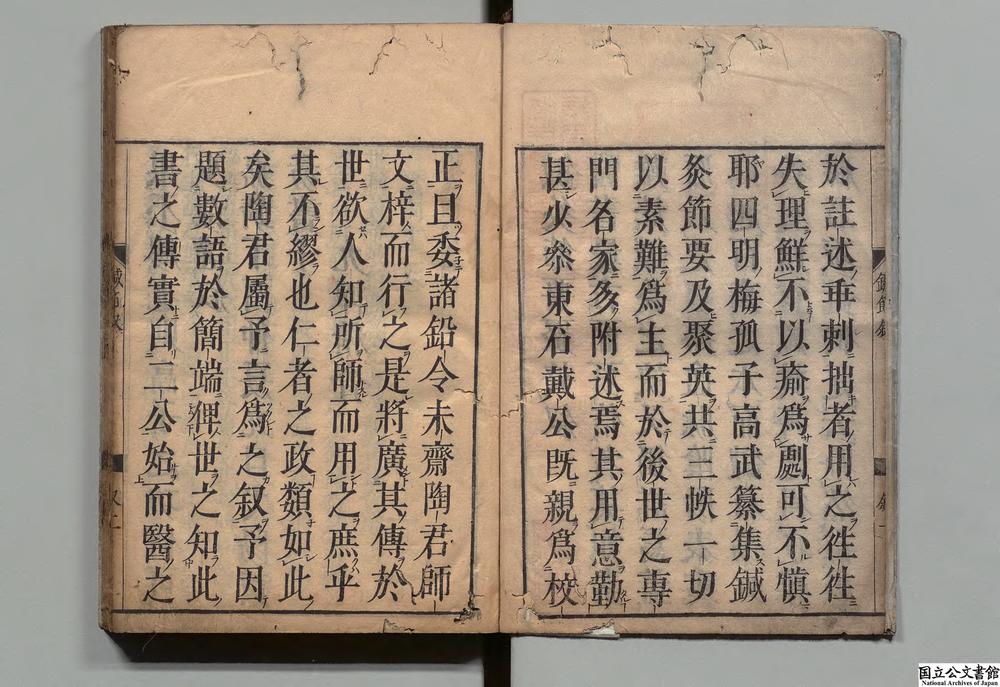 於註述乖刺拙者用之徃徃
失理鮮不以瘉為劇可不慎
耶四明梅孤子高武纂集鍼
灸節要及聚英共三帙一切
以素難為主而於後世之專
門各家多附述焉其用意勤
甚少叅東石戴公既親為校
正且委諸鉛令未齋陶君師
文梓而行之是將廣其傳於
世欲人知所師而用之庶乎
其不繆也仁者之政類如此
矣陶君屬予言為之叙予因
題數語於簡端俾世之知此
書之傳實自二公始而醫之
国立公文書館
National Archives of Japan